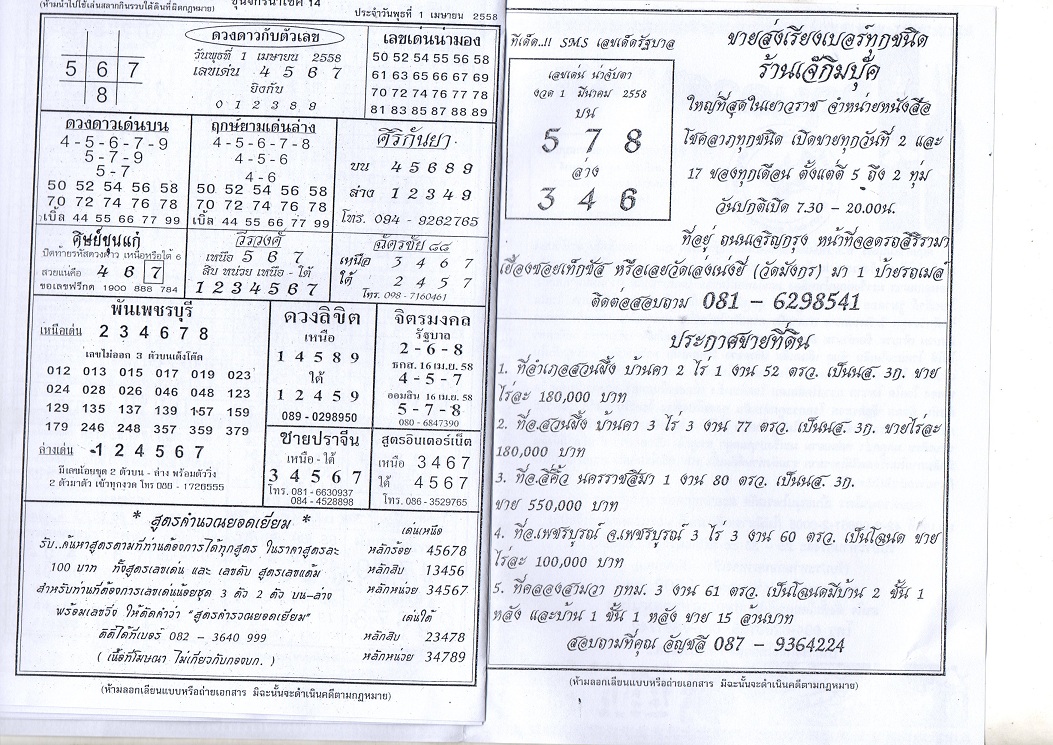 (ห้ามนำไปใช้เล่นสลากกินรวบใต้ดินที่ผิดกฎหมาย)
ขุนจักรนำโชค 14
ประจำวันพุธที่ 1 เมษายน 2558
5 6 7
8
ดวงดาวกับตัวเลข
วันพุธที่ 1 เมษายน 2558
เลขเด่น 4 5 6 7
ยิงกับ
0 1 2 3 8 9
เลขเด่นน่ามอง
50 52 54 55 56 58
61 63 65 66 67 69
70 72 74 76 77 78
81 83 85 87 88 89
ดวงดาวเด่นบน
4-5-6-7-9
5-7-9
5-7
50 52 54 56 58
70 72 74 76 78
เบิ้ล 44 55 66 77 99
ฤกษ์ยามเด่นล่าง
4-5-6-7-8
4-5-6
4-6
50 52 54 56 58
70 72 74 76 78
เบิ้ล 44 55 66 77 99
ศิริกันยา
บน 4 5 6 8 9
ล่าง 1 2 3 4 9
โทร. 094 - 9262765
ศิษย์ขุนแก่
ปิดท้ายรหัสดวงดาว เหนือหรือใต้ 6
สวยแน่คือ 4 6 7
ขอเลขฟรีกด 1900 888 784
วีรวงศ์
เหนือ 5 6 7
สิบ หน่วย เหนือ - ใต้
1 2 3 4 5 6 7
ฉัตรชัย ๘๘
เหนือ 3 4 6 7
ใต้ 2 4 5 7
โทร. 098 - 7160461
พันเพชรบุรี
เหนือเด่น 2 3 4 6 7 8
เลขไม่ออก 3 ตัวบนเต็งโต๊ด
012 013 015 017 019 023
024 028 026 046 048 123
129 135 137 139 157 159
179 246 248 357 359 379
ล่างเด่น 1 2 4 5 6 7
มีเลขน้อยชุด 2 ตัวบน - ล่าง พร้อมตัววิ่ง
2 ตัวมาตัว เข้าทุกงวด โทร 086 - 1726555
ดวงลิขิต
เหนือ
1 4 5 8 9
ใต้
1 2 4 5 9
089 - 0298950
จิตรมงคล
รัฐบาล
2 - 6 - 8
ธกส. 16 เม.ย. 58
4 - 5 - 7
ออมสิน 16 เม.ย. 58
5 - 7 - 8
080 - 6847390
ชายปราจีน
เหนือ - ใต้
3 4 5 6 7
โทร. 081 - 6630937
084 - 4528898
สูตรอินเตอร์เน็ต
เหนือ 3 4 6 7
ใต้ 4 5 6 7
โทร. 086 - 3529765
* สูตรคำนวณยอดเยี่ยม *
รับ..ค้นหาสูตรตามที่ท่านต้องการได้ทุกสูตร ในราคาสูตรละ
100 บาท ทั้งสูตรเลขเด่น และ เลขดับ สูตรเลขแต้ม
สำหรับท่านที่ต้องการเลขเด่นน้อยชุด 3 ตัว 2 ตัว บน-ล่าง
พร้อมเลขวิ่ง ให้ตัดคำว่า "สูตรคำรวณยอดเยี่ยม"
ติดต่อได้ที่เบอร์ 082 - 3640 999
( เนื้อที่โฆษณา ไม่เกี่ยวกับกองบก. )
เด่นเหนือ
หลักร้อย 45678
หลักสิบ 13456
หลักหน่วย 34567
เด่นใต้
หลักสิบ 23478
หลักหน่วย 34789
(ห้ามลอกเลียนแบบหรือถ่ายเอกสาร มิฉะนั้นจะดำเนินคดีตามกฎหมาย)
ทีเด็ด..!! SMS เลขเด็ดรัฐบาล
เลขเด่น น่าจับตา
งวด 1 มีนาคม 2558
บน
5 7 8
ล่าง
3 4 6
ขายส่งเรียงเบอร์ทุกชนิด
ร้านเจ๊กิมบุ๊ค
ใหญ่ที่สุดในเยาวราช จำหน่ายหนังสือ
โชคลาภทุกชนิด เปิดขายทุกวันที่ 2 และ
17 ของทุกเดือน ตั้งแต่ตี 5 ถึง 2 ทุ่ม
วันปกติเปิด 7.30 - 20.00น.
ที่อยู่ ถนนเจริญกรุง หน้าที่จอดรถสิริรามา
เยื้องซอยเท็กซัส หรือเลยวัดเล่งเน่ยยี่ (วัดมังกร) มา 1 ป้ายรถเมล์
ติดต่อสอบถาม 081 - 6298541
ประกาศขายที่ดิน
1. ที่อำเภอสวนผึ้ง บ้านคา 2 ไร่ 1 งาน 52 ตรว. เป็นนส. 3ก. ขาย
ไร่ละ 180,000 บาท
2. ที่อ.สวนผึ้ง บ้านคา 3 ไร่ 3 งาน 77 ตรว. เป็นนส. 3ก. ขายไร่ละ
180,000 บาท
3. ที่อ.สีคิ้ว นครราชสีมา 1 งาน 80 ตรว. เป็นนส. 3ก.
ขาย 550,000 บาท
4. ที่อ.เพชรบูรณ์ จ.เพชรบูรณ์ 3 ไร่ 3 งาน 60 ตรว. เป็นโฉนด ขาย
ไร่ละ 100,000 บาท
5. ที่คลองสามวา กทม. 3 งาน 61 ตรว. เป็นโฉนดมีบ้าน 2 ชั้น 1
หลัง และบ้าน 1 ชั้น 1 หลัง ขาย 15 ล้านบาท
สอบถามที่คุณ อัญชลี 087 - 9364224
(ห้ามลอกเลียนแบบหรือถ่ายเอกสาร มิฉะนั้นจะดำเนินคดีตามกฎหมาย)